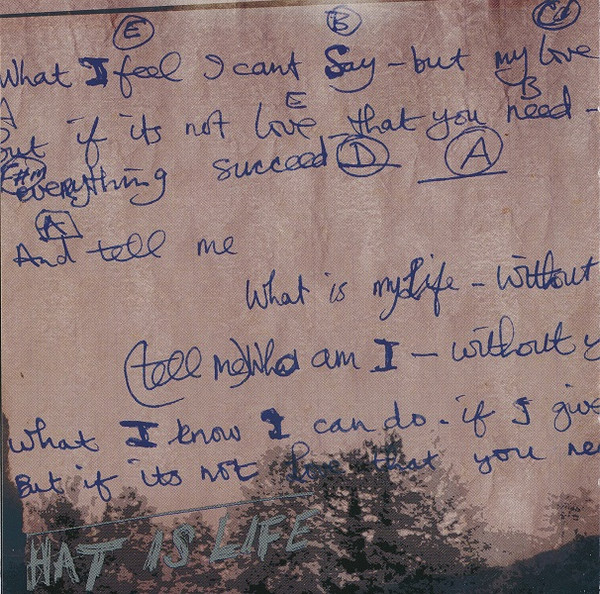 E B
What I feel I cant Say - but my love
A E B
But if its not love that you need -
F#m
everything succeed D A
A
And tell me
What is my Life - without
(tell me) Who am I - without y
What I know I can do - if I give
But if its not love that you nee
HAT IS LIFE